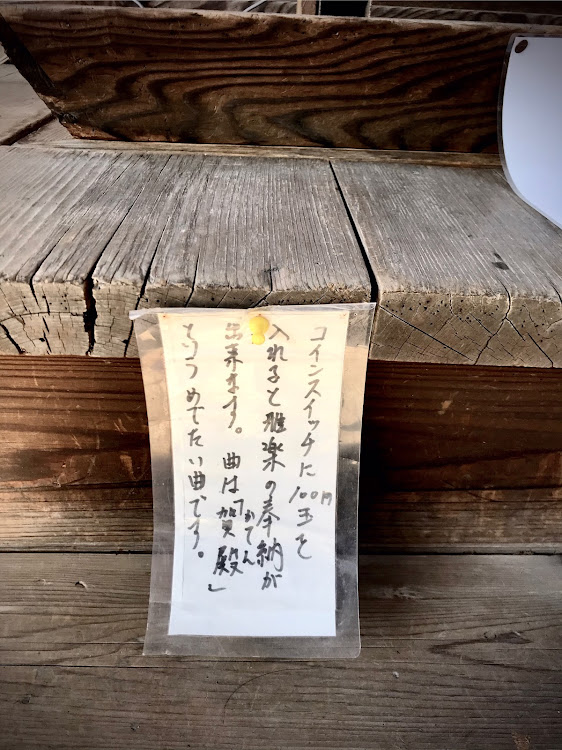 コインスイッチに100円玉を
入れると雅楽の奉納が
出来ます。曲は「賀殿」
かてん
めでたい曲です。